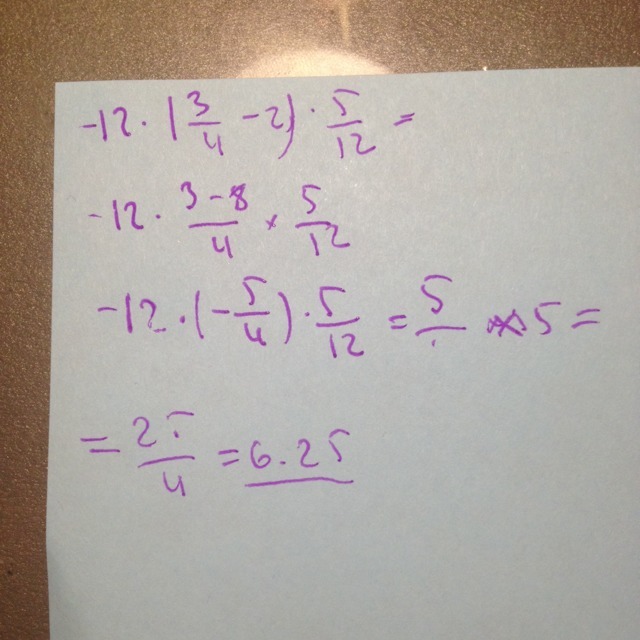 -12 · (3/4 - 2) · 5/12 =
-12 · 3-8/4 × 5/12
-12 · (-5/4) · 5/12 = 5/ · 5 =
= 25/4 = 6.25